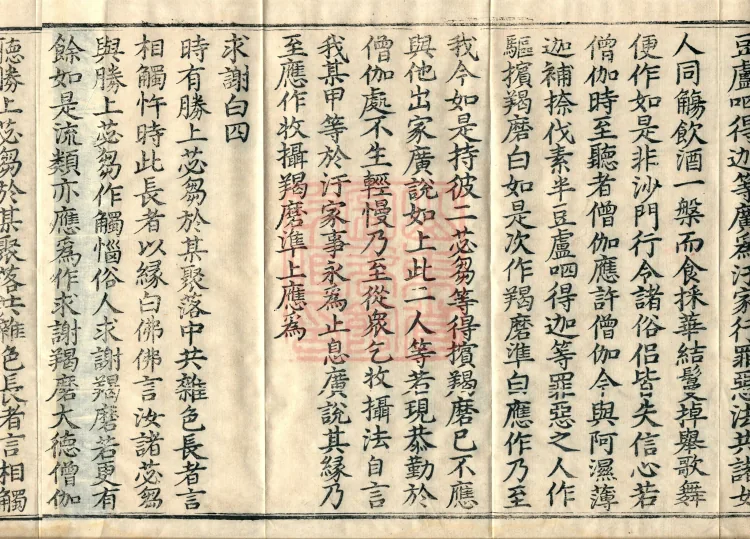 豆盧呬得迦等廣爲汙家行罪惡法共諸女
人同觴飲酒一槃而食採華結鬘掉舉歌舞
便作如是非沙門行令諸俗侶皆失信心若
僧伽時至聽者僧伽應許僧伽今與阿濕薄
迦補捺伐素半豆盧呬得迦等罪惡之人作
驅擯羯磨白如是次作羯磨準白應作乃至
我今如是持彼二苾芻等得擯羯磨已不應
與他出家廣說如上此二人等若現恭勤於
僧伽處不生輕慢乃至從衆乞收攝法自言
我某甲等於汙家事永爲止息廣說其緣乃
至應作收攝羯磨準上應爲
求謝白四
時有勝上苾芻於某聚落中共雜色長者言
相觸忤時此長者以緣白佛佛言汝諸苾芻
與勝上苾芻作觸惱俗人求謝羯磨若更有
餘如是流類亦應爲作求謝羯磨大德僧伽
聽勝上苾芻於某聚落共雜色長者言相觸